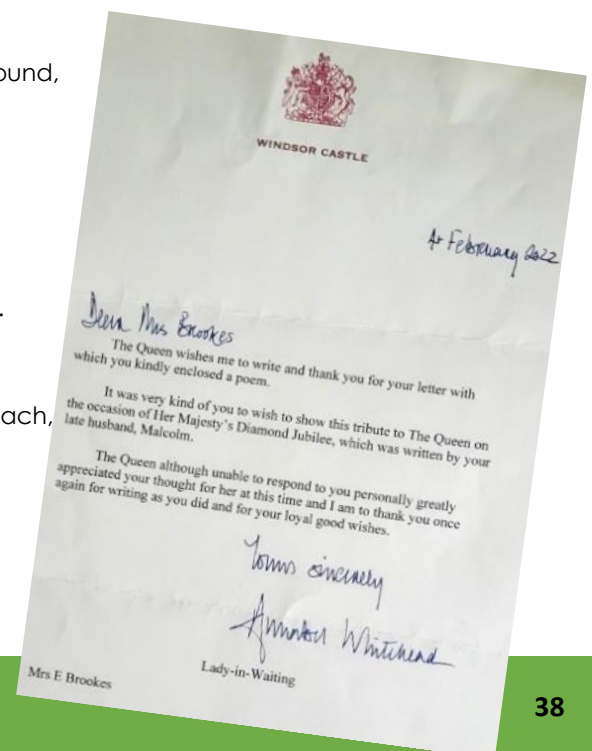 ound,
.
ach,
WINDSOR CASTLE
February 2022
Dear Mrs Brookes
The Queen wishes me to write and thank you for your letter with
which you kindly enclosed a poem.
It was very kind of you to wish to show this tribute to The Queen on
the occasion of Her Majesty's Diamond Jubilee, which was written by your
late husband, Malcolm.
The Queen although unable to respond to you personally greatly
appreciated your thought for her at this time and I am to thank you once
again for writing as you did and for your loyal good wishes.
Yours sincerely
Whitehead
Lady-in-Waiting
Mrs E Brookes
38